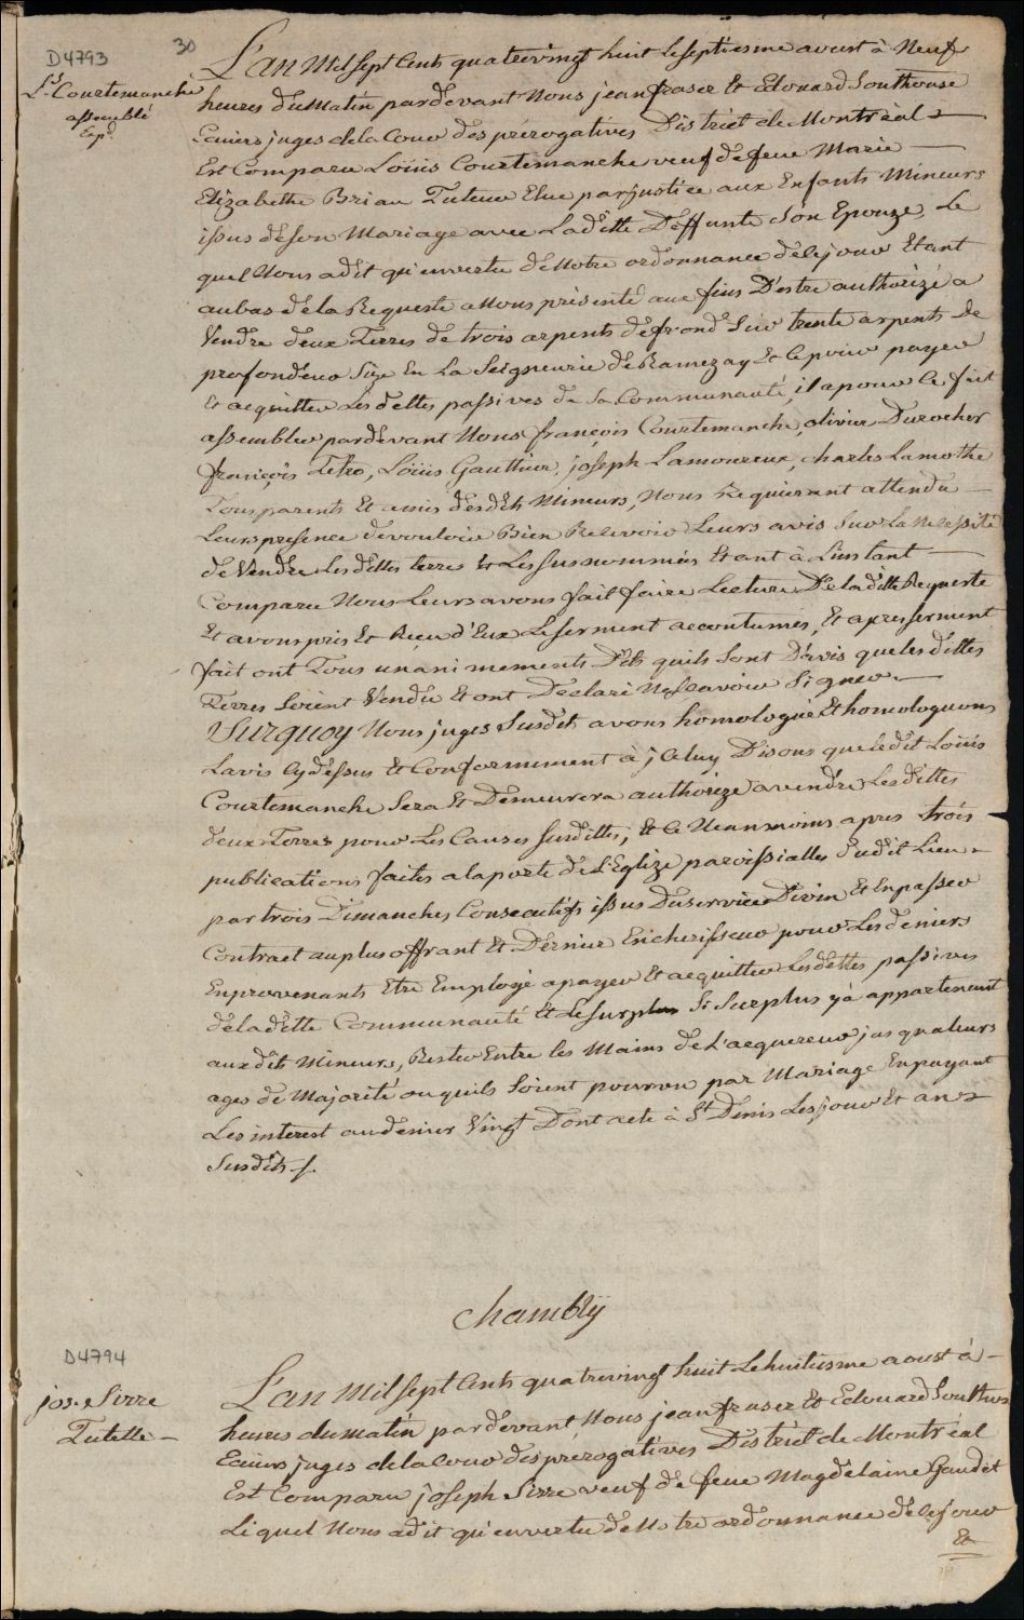 D4793
30
Ls Courtemanche
assemblé
Exp.d
L'an Mil sept Cents quatrevingt huit Le septiesme aoust à Neuf
heures du Matin pardevant Nous jean fraser Et Edouard Southouse
Ecuiers juges de la Cour des prérogatives District de Montréal
Est Comparu Loüis Courtemanche veuf de feue Marie
Elizabethe Briau Tuteur Elue par justice aux Enfants Mineurs
issus de son Mariage avec Ladитte Deffunte Son Epouze, Le
quel Nous a dit qu'en vertu de Notre ordonnance de Ce jour Etant
au bas de la Requeste a Nous présenté aux fins D'estre authorizé a
Vendre deux Terres de trois arpents de frond Sur trente arpents de
profondeur Size En La Seigneurie de Ramezay Et Ce pour payer
Et acquitter Les dettes passives de Sa Communauté, il a pour Ce fait
assembler pardevant Nous françois Courtemanche, olivier Durocher
françois Tetro, Loüis Gauthier, joseph Lamoureux, charles Lamothe
Tous parents Et amis desdits Mineurs, Nous Requierant attendu
Leurs presence de vouloir Bien Recevoir Leurs avis Sur La Necessité
de Vendre Lesdittes terres Et Les susnommés Etant à L'instant
Comparu Nous Leurs avons fait faire Lecture De ladite Requeste
Et avons pris Et Reçu d'Eux Le serment accoutumés, Et apres serment
fait ont Tous unanimements Dits quils Sont D'avis que les dittes
Terres Soient Vendu Et ont Declaré Ne Scavoir Signer.
Surquoy Nous juges Susdits avons homologué Et homologuons
Lavis Cy dessus Et Conformement à jceluy Disons que ledit Loüis
Courtemanche Sera Et Demeurera authorizé a vendre Lesdittes
deux Terres pour Les Causes susdittes, Et Ce Neanmoins apres trois
publications faites a la porte de L'Eglize paroissialle dudit Lieu
par trois Dimanches Consecutifs issus Du service Divin Et En passer
Contract au plus offrant Et Dernier Encherisseur pour Les deniers
En provenants Etre Employé a payer Et acquitter Les dettes passives
de ladite Communauté Et Le surplus Si Surplus y à appartenant
auxdits Mineurs, Rester Entre les Mains de L'acquereur jusqua leurs
ages de Majorité ou quils Soient pourvu par Mariage En payant
Les interest au denier Vingt Dont acte à St Denis Les jour Et an
Susdits
Chambly
D4794
jos. Sirre
Tutelle
L'an Mil sept Cents quatrevingt huit Le huitiesme aoust à
heures du matin pardevant Nous jean fraser Et Edouard Southous
Ecuiers juges de la Cour des prerogatives District de Montréal
Est Comparu joseph Sirre veuf de feue Magdelaine Gaudet
Lequel Nous a dit qu'en vertu de Notre ordonnance de Ce jour
Et